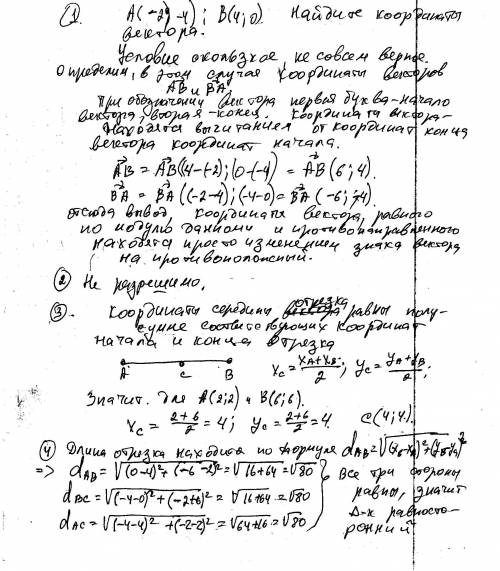 ① A(-2;-4); B(4;0). Найдите координаты
вектора.
Условие скользкое, не совсем верное.
Определим, в этом случае координаты векторов
AB и BA.
При обозначении вектора первая буква-начало
вектора, вторая-конец. Координата вектора-
находятся вычитанием от координат конца
вектора координат начала.
AB = AB((4-(-2); (0-(-4)) = AB(6; 4).
BA = BA((-2-4); (-4-0) = BA(-6; -4).
отсюда вывод, координаты вектора, равного
по модулю данному и противонаправленного
находятся просто изменением знака вектора
на противоположный.
② Не разрешимо.
③. Координаты середины отрезка равны полу-
сумме соответствующих координат
начала и конца отрезка
A C B xc = (xA+xB)/2; yc = (yA+yB)/2;
Значит. для A(2;2) и B(6;6).
xc = (2+6)/2 = 4; yc = (2+6)/2 = 4. C(4;4).
④ Длина отрезка находится по формуле dAB=√((xB-xA)²+(yB-yA)²
=> dAB = √((0-4)²+(-6-2)² = √16+64 = √80
dBC = √(-4-0)²+(-2+6)² = √16+64 = √80
dAC = √(-4-4)²+(-2-2)² = √64+16 = √80
Все три стороны
равны, значит
Δ-к равносто-
ронний